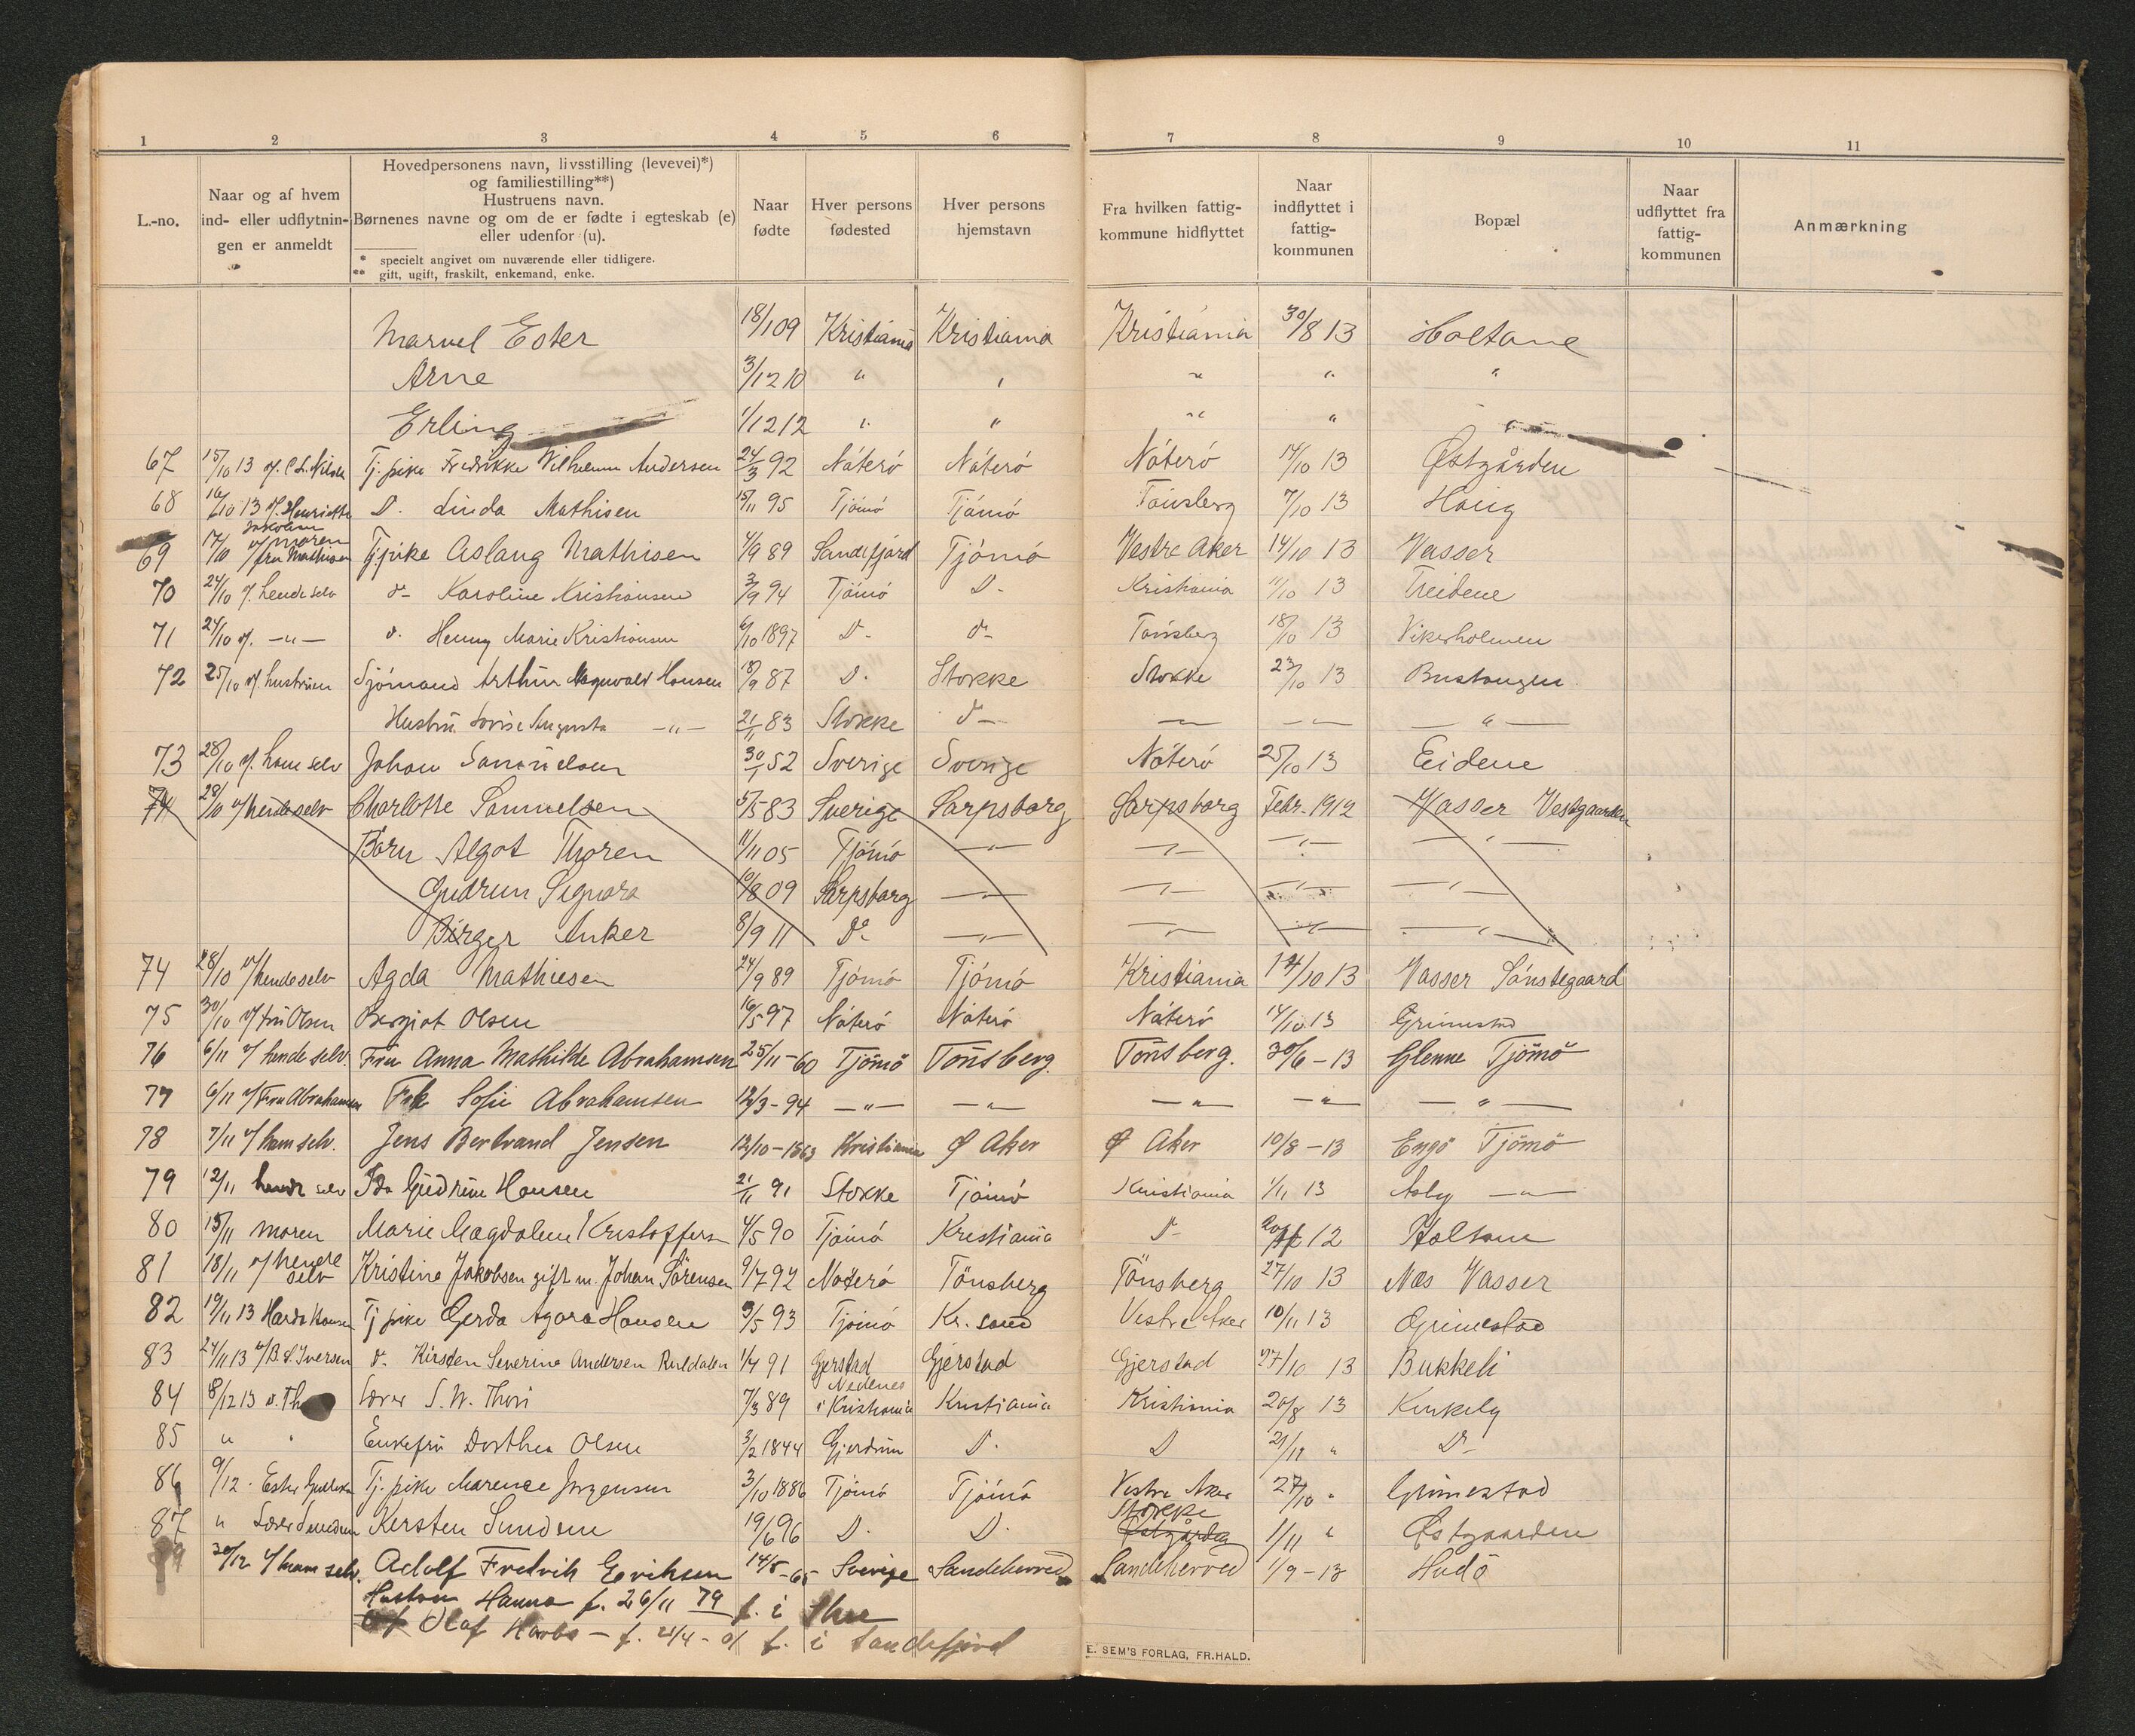 1 2 3 4 5 6 7 8 9 10 11
L.-no.
Naar og af hvem
ind- eller udflytnin-
gen er anmeldt
Hovedpersonens navn, livsstilling (levevei)*)
og familiestilling**)
Hustruens navn.
Børnenes navne og om de er fødte i egteskab (e)
eller udenfor (u).
* specielt angivet om nuværende eller tidligere.
** gift, ugift, fraskilt, enkemand, enke.
Naar
fødte
Hver persons
fødested
Hver persons
hjemstavn
Fra hvilken fattig-
kommune hidflyttet
Naar
indflyttet i
fattig-
kommunen
Bopæl
Naar
udflyttet fra
fattig-
kommunen
Anmærkning
Marvel Ester 18/1 09 Kristiania Kristiania Kristiania 30/8 13 Holtane
Arne 3/12 10 " " " " "
Erling 1/12 12 " " " " "
67 15/10 13 v/. Tj. pike Fredrikke Vilhelmine Andersen 24/3 92 Nöterö Nöterö Nöterö 14/10 13 Østgården
68 16/10 13 v/. Henriette Jakobsen D. Linda Mathisen 15/11 95 Tjömö Tjömö Tönsberg 7/10 13 Haug
69 17/10 v/ moren fru Mathisen Tj. pike Aslaug Mathisen 4/9 89 Sandefjord Tjömö Vestre Aker 14/10 13 Vasser
70 24/10 v/. hende selv d- Karoline Kristiansen 3/9 94 Tjömö D- Kristiania 11/10 13 Treidene
71 24/10 v/. -"- d. Henny Marie Kristiansen 6/10 1897 D- d- Tönsberg 18/10 13 Vikerholmen
72 25/10 v/. hustruen Sjömand Arthur Magnvald Hansen 18/9 87 D. Stokke Stokke 23/10 13 Bustangen
Hustru Lovise Augusta -"- 21/11 83 Stokke d- -"- -"- -"-
73 28/10 v/. ham selv Johan Samuelsen 30/1 52 Sverige Sverige Nöterö 25/10 13 Eidene
74 28/10 v/ hende selv Charlotte Samuelsen 5/5 83 Sverige Sarpsborg Sarpsborg Febr. 1912 Vasser Vestgaarden
Börn Algot Thoren 11/11 05 Tjömö -"- -"- -"- -"-
Gudrun Signora 10/8 09 Sarpsborg -"- -"- -"- -"-
Birger Anker 8/9 11 Do -"- -"- -"- -"-
74 28/10 v/ hende selv Agda Mathiesen 24/9 89 Tjömö Tjömö Kristiania 14/10 13 Vasser Sönstegaard
75 30/10 v/ fru Olsen Bergiot Olsen 16/5 97 Nöterö Nöterö Nöterö 14/10 13 Grimestad
76 6/11 v/ hende selv. Fru Anna Mathilde Abrahamsen 25/11-60 Tjömö Tönsberg. Tönsberg. 30/6-13 Glenne Tjömö
77 6/11 v/ Fru Abrahamsen Frk Sofie Abrahamsen 12/3-94 -"- -"- -"- -"- -"-
78 7/11 v/ ham selv. Jens Bertrand Jensen 12/10-1863 Kristiania Ø Aker Ø Aker 10/8-13 Engö Tjömö
79 12/11 hende selv Ida Gudrun Hansen 21/11 91 Stokke Tjömö Kristiania 1/11 13 -"-
80 15/11 moren Marie Magdalene Kristoffersen 4/5 90 Tjömö Kristiania D- 12 Holtane
81 18/11 v/ hende selv Kristine Jakobsen gift m. Johan Sörensen 9/7 92 Nöterö Tönsberg Tönsberg 27/10 13 Nes Vasser
82 19/11 13 Harda Hansen Tj pike Gerda Agora Hansen 3/5 93 Tjömö Kr. sand Vestre Aker 10/11 13 Grimestad
83 24/11 13 v/ B. S. Iversen d. Kirsten Severine Andersen 1/4 91 Gjerstad Nedenes Gjerstad Gjerstad 27/10 13 Bukkeli
84 8/12 13 v. Lærer S. W. Thori 7/3 89 i Kristiania Kristiania Kristiania 20/8 13
85 " " Enkefru Dorthea Olsen 3/2 1844 Gjerdrum D. D 21/12 " D-
86 9/12. Ester Tj. pike Marense Jörgensen 3/10 1886 Tjömö Tjömö Vestre Aker 27/10 " Grimestad
87 " Kirsten Sundene 19/6 96 D. D. Stokke Østgården 1/11 " Østgaarden
30/12 v/ ham selv. Adolf Fredrik Eriksen 14/5-65 Sverige Sandeherred Sandeherred 1/9-13 Hudö
Hustru Hanna f. 26/11 79 f. i
Olaf Harbo - f. 21/4-01 f. i Sandefjord
E. SEM'S FORLAG, FR.HALD.